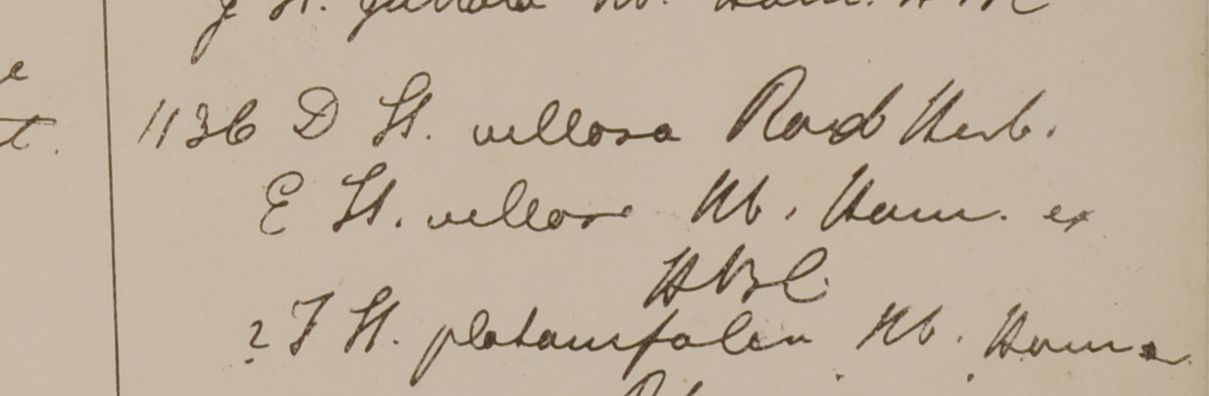 1136 D St. villosa Roxb Herb.
E St. villosa Hb. Ham. ex
HBC
? F St. platanifolia Hb. Ham